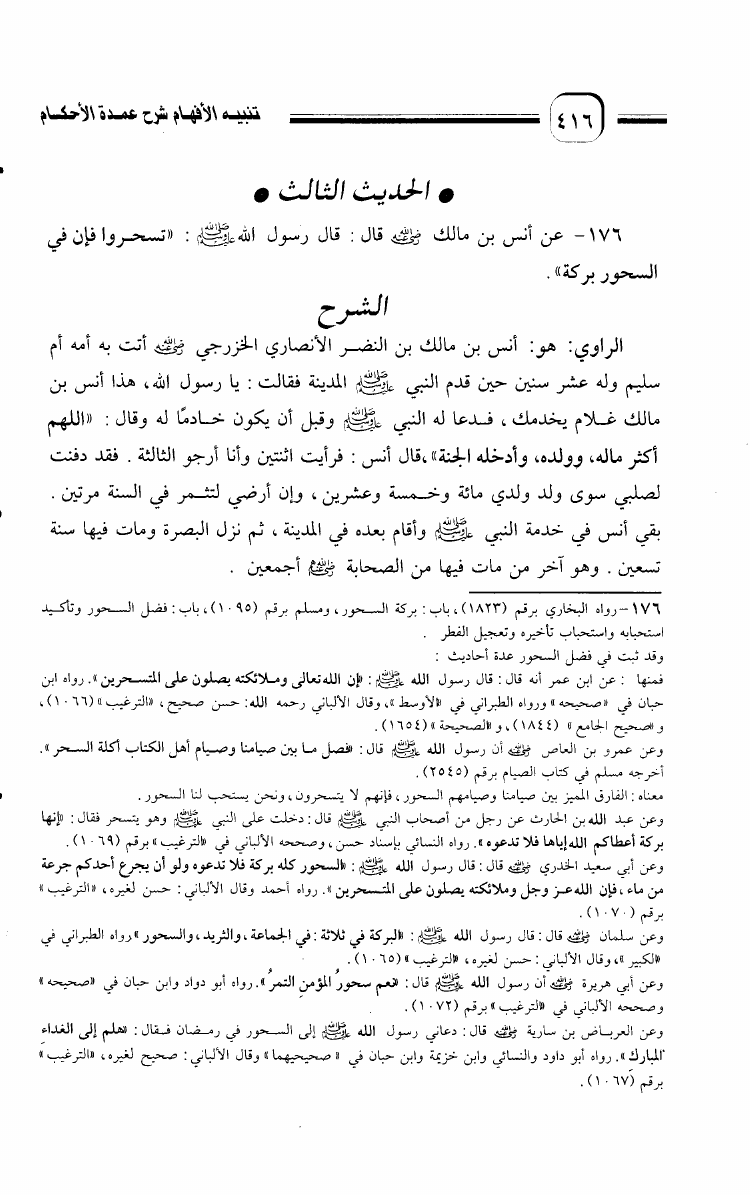 ٤١٦ تنبيه الأفهام شرح عمدة الأحكام
● الحديث الثالث ●
١٧٦- عن أنس بن مالك رضي الله عنه قال : قال رسول الله ﷺ : «تسحروا فإن في
السحور بركة» .
الشرح
الراوي: هو: أنس بن مالك بن النضر الأنصاري الخزرجي رضي الله عنه أتت به أمه أم
سليم وله عشر سنين حين قدم النبي ﷺ المدينة فقالت : يا رسول الله، هذا أنس بن
مالك غلام يخدمك ، فدعا له النبي ﷺ وقبل أن يكون خادمًا له وقال : «اللهم
أكثر ماله، وولده، وأدخله الجنة»،قال أنس : فرأيت اثنتين وأنا أرجو الثالثة . فقد دفنت
لصلبي سوى ولد ولدي مائة وخمسة وعشرين ، وإن أرضي لتثمر في السنة مرتين .
بقي أنس في خدمة النبي ﷺ وأقام بعده في المدينة ، ثم نزل البصرة ومات فيها سنة
تسعين . وهو آخر من مات فيها من الصحابة رضي الله عنهم أجمعين .
١٧٦-رواه البخاري برقم (١٨٢٣)، باب : بركة السحور، ومسلم برقم (١٠٩٥)، باب : فضل السحور وتأكيد
استحبابه واستحباب تأخيره وتعجيل الفطر .
وقد ثبت في فضل السحور عدة أحاديث :
فمنها : عن ابن عمر أنه قال : قال رسول الله ﷺ : «إن الله تعالى وملائكته يصلون على المتسحرين». رواه ابن
حبان في «صحيحه» ورواه الطبراني في «الأوسط»، وقال الألباني رحمه الله: حسن صحيح، «الترغيب» (١٠٦٦)،
و«صحيح الجامع» (١٨٤٤)، و«الصحيحة» (١٦٥٤).
وعن عمرو بن العاص رضي الله عنه أن رسول الله ﷺ قال: «فصل ما بين صيامنا وصيام أهل الكتاب أكلة السحر».
أخرجه مسلم في كتاب الصيام برقم (٢٥٤٥).
معناه : الفارق المميز بين صيامنا وصيامهم السحور، فإنهم لا يتسحرون، ونحن يستحب لنا السحور.
وعن عبد الله بن الحارث عن رجل من أصحاب النبي ﷺ قال: دخلت على النبي ﷺ وهو يتسحر فقال: «إنها
بركة أعطاكم الله إياها فلا تدعوه». رواه النسائي بإسناد حسن، وصححه الألباني في «الترغيب» برقم (١٠٦٩).
وعن أبي سعيد الخدري رضي الله عنه قال : قال رسول الله ﷺ : «السحور كله بركة فلا تدعوه ولو أن يجرع أحدكم جرعة
من ماء، فإن الله عز وجل وملائكته يصلون على المتسحرين». رواه أحمد وقال الألباني : حسن لغيره، «الترغيب»
برقم (١٠٧٠).
وعن سلمان رضي الله عنه قال : قال رسول الله ﷺ : «البركة في ثلاثة : في الجماعة، والثريد، والسحور» رواه الطبراني في
«الكبير»، وقال الألباني : حسن لغيره، «الترغيب» (١٠٦٥).
وعن أبي هريرة رضي الله عنه أن رسول الله ﷺ قال : «نعم سحورُ المؤمنِ التمرُ». رواه أبو دواد وابن حبان في «صحيحه»
وصححه الألباني في «الترغيب» برقم (١٠٧٢).
وعن العرباض بن سارية رضي الله عنه قال : دعاني رسول الله ﷺ إلى السحور في رمضان فقال : «هلم إلى الغداءِ
المباركِ». رواه أبو داود والنسائي وابن خزيمة وابن حبان في « صحيحيهما» وقال الألباني : صحيح لغيره، «الترغيب»
برقم (١٠٦٧).